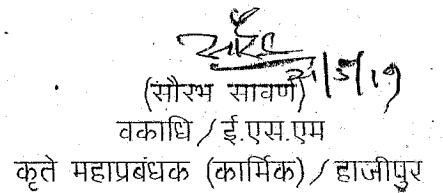 21/5/19
(सौरभ सावर्ण)
वकाधि/ई.एस.एम
कृते महाप्रबंधक (कार्मिक)/हाजीपुर